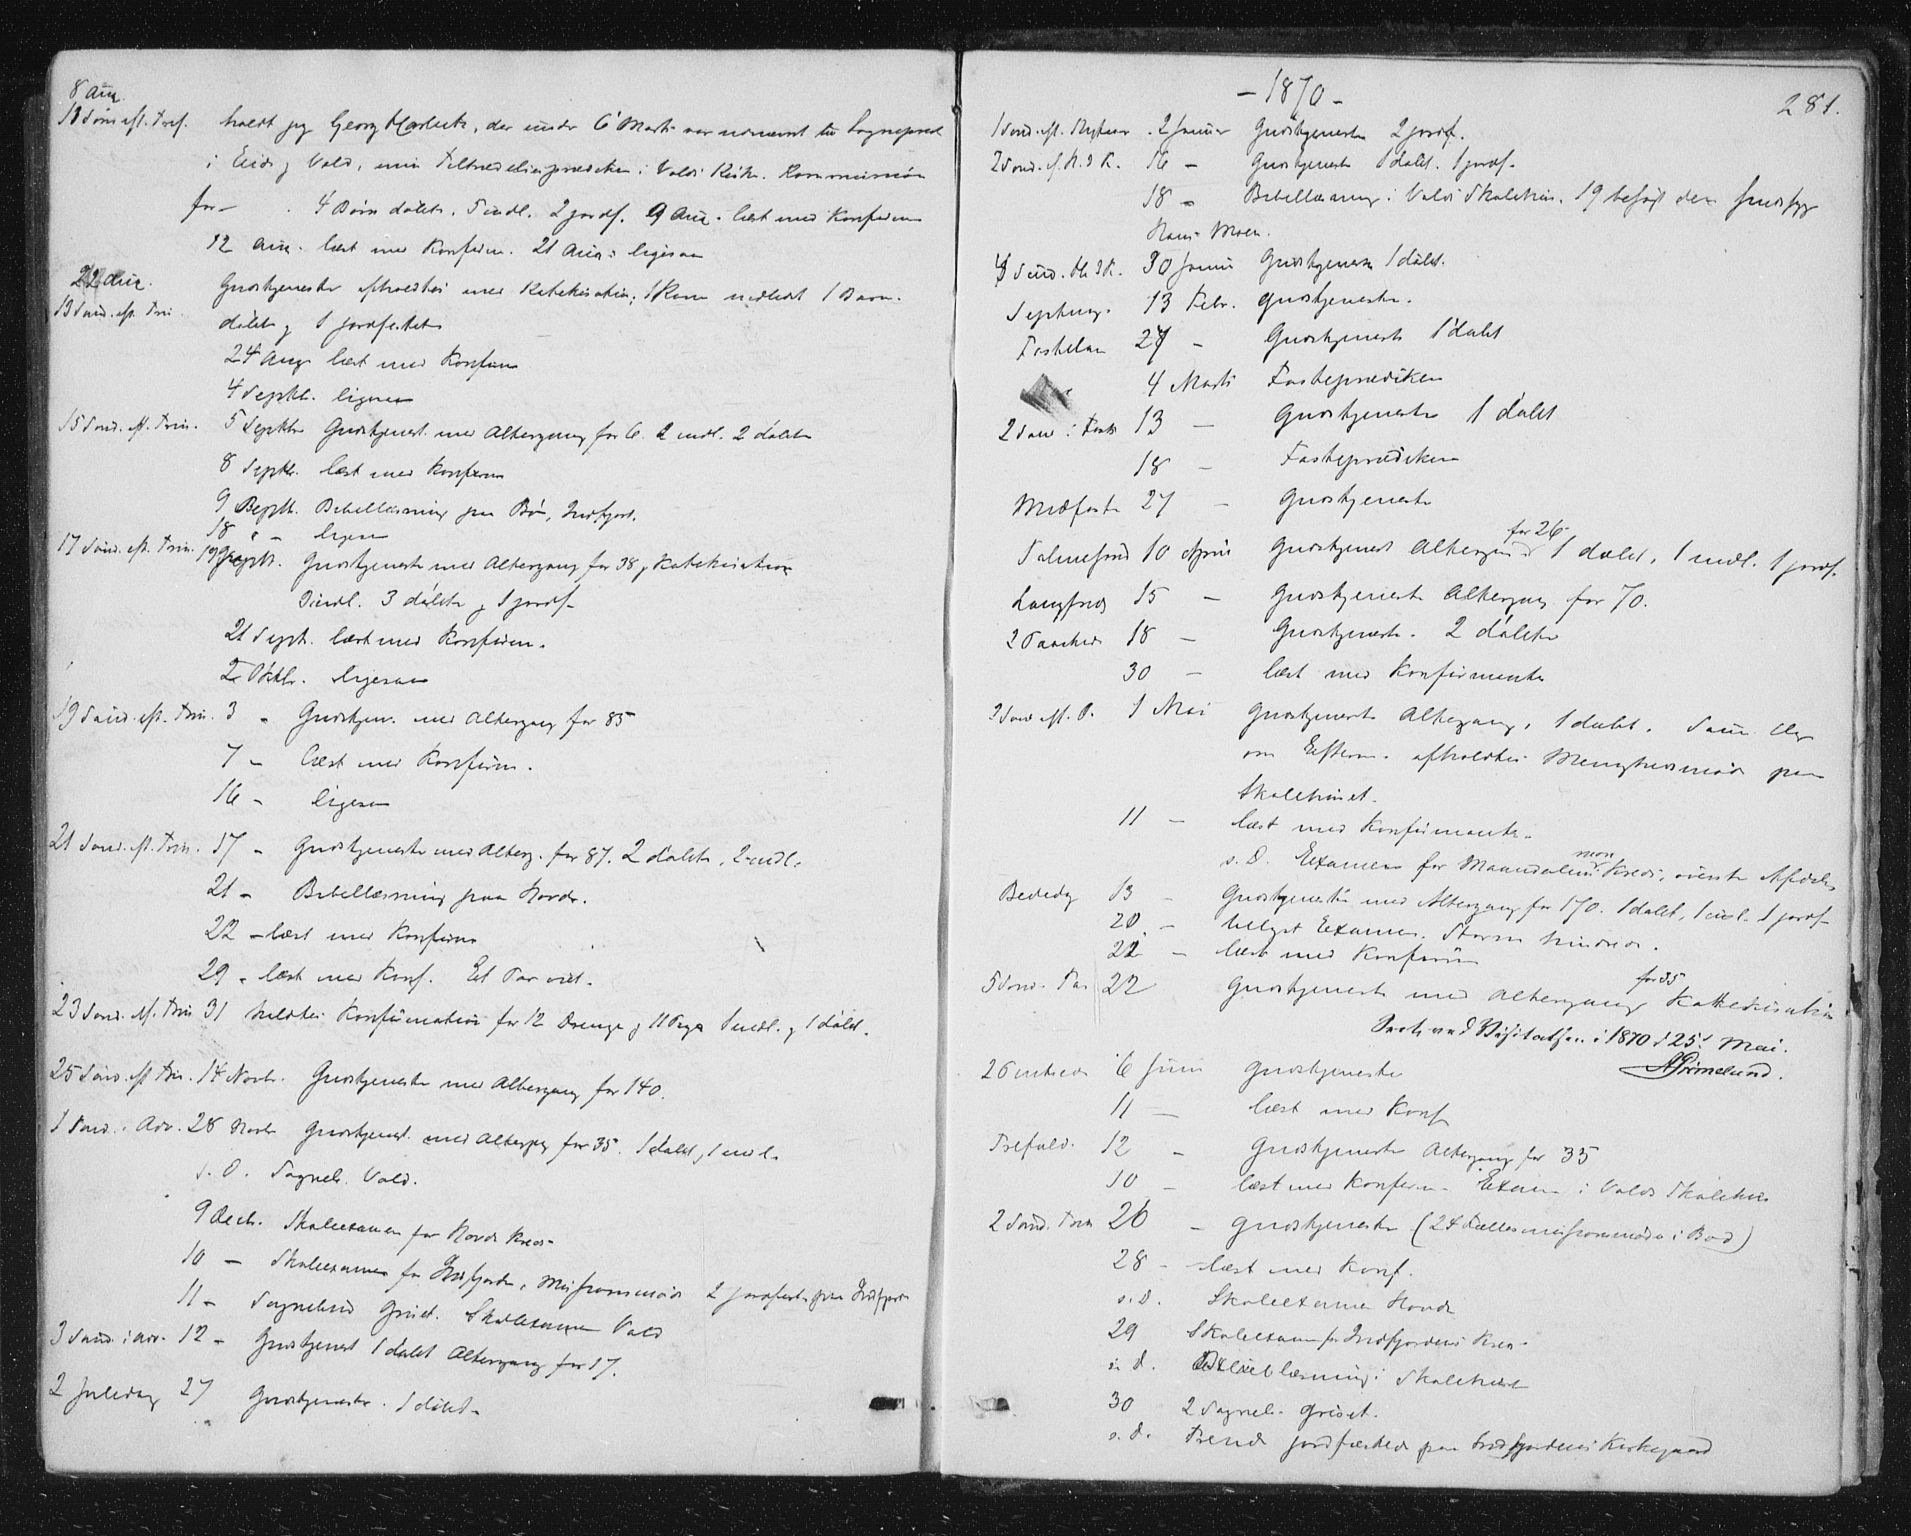 8 Aug.
holdt jeg Georg, der under 6 Marts var udnævnt til Sognepræst
i Eids og Vold, min Tiltrædelsesprædiken i Volds Kirke. Kommunion
for - 4 Børn døbte. 5 indl. 2 jordf. 9 Aug. læst med Konfirm
12 Aug. læst med Konfirm. 21 Aug. ligesaa
22 Aug. Gudstjeneste afholdtes med Katekisation; 1 Kone indledt 1 Barn
13 Sønd. eft. Trin. døbt og 1 jordfæstet
24 Aug læst med Konfirm
4 Septbr. ligesaa
15 Sønd. eft. Trin. 5 Septbr Gudstjenest. med Altergang for 6. 2 indl. 2 døbte
8 Septbr. læst med Konfirm
9 Septb. Bibellæsning paa Bø, Indfjord.
18 " - ligesaa
17 Sønd. eft. Trin. 19 Septb. Gudstjeneste med Altergang for 38 og Katekisation
indl. 3 døbte og 1 jordf.
21 Septb. læst med Konfirm.
2 Oktbr. ligesaa
19 Sønd. eft. Trin. 3 - Gudstjen. med Altergang for 85
7 - læst med Konfirm.
16 - ligesaa
21 Sønd. eft. Trin. 17 - Gudstjeneste med Alterg. for 87. 2 døbte, 2 indl.
21 - Bibellæsning paa Hovde.
22 - læst med Konfirm
29 - læst med Konf. Et Par viet.
23 Sønd. eft. Trin 31 holdtes Konfirmation for 12 Drenge og 11 Piger 1 indl. og 1 døbt.
25 Sønd. eft Trin. 14 Novbr. Gudstjeneste med Altergang for 140.
1 Sønd. i Adv. 28 Novbr Gudstjenest. med Altergang for 35. 1 døbt, 1 indl.
s. D. Sogneb. Vold.
9 Decb. Skoleexamen for Hovde Kreds
10 - Skoleexamen for Indfjorden, Missionsmøde 2 jordfæst. paa Indfjord
11 - Sognebud Griset. Skoleexamen Vold
3 Sønd. i Adv. 12 - Gudstjenest 1 døbt Altergang for 17.
2 Juledag 27 Gudstjeneste. 1 døbt.
- 1870 -
281.
1 Sønd. eft. Nytaar 2 Januar Gudstjeneste 2 jordf.
2 Sønd. e. H. 3 K. 16 - Gudstjeneste 1 døbt. 1 jordf.
18 - Bibellæsning i Volds Skolehus. 19 besøgt den
Hans Moen.
4 Sønd. Hl. 3 K. 30 Januar Gudstjeneste 1 døbt.
Septuag. 13 Febr. Gudstjeneste.
Fastelavn 27 - Gudstjeneste 1 døbt
4 Marts Fasteprædiken
2 Sønd i Faste 13 - Gudstjeneste 1 døbt
18 - Fasteprædiken
Midfaste 27 - Gudstjeneste
for 26
Palmesønd 10 April Gudstjenest Altergang 1 døbt, 1 indl. 1 jordf.
Langfred 15 - Gudstjeneste Altergang for 70.
2 Paaskeda 18 - Gudstjeneste. 2 døbte
30 - læst med Konfirmante
2 Sønd eft. P. 1 Mai Gudstjeneste Altergang, 1 døbt. Samme Dag
om Efterm. afholdtes Menighedsmøde paa
Skolehuset.
11 - læst med Konfirmante.
s. D. Examen for Maandalens Kreds, øverste Afdeling
Bededag 13 - Gudstjeneste med Altergang for 170. 1 døbt, 1 indl. 1 jordf
20 - belyst Examen. Storm hindrede.
22 - læst med Konfirm
for 35
5 Sønd. Paa 22 Gudstjeneste med Altergang Katekisation
Seet ved Visitatsen i 1870 d 25. Mai.
AGrimelund.
2 Pintsed 6 Juni Gudstjeneste
11 - læst med Konf
Trefold. 12 - Gudstjeneste Altergang for 35
10 - læst med Konfirm - Examen i Volds Skolehus
2 Sønd. Trin 26 - Gudstjeneste (24 Fællesmissionsmøde i Bod)
28 - læst med Konf.
s. D. Skoleexamen Hovde
29 Skoleexam for Indfjordens Kreds
s. D. Bibellæsning i Skolehuset
30 2 Sogneb. Griset.
s. D. jordfæstede paa Indfjordens Kirkegaard